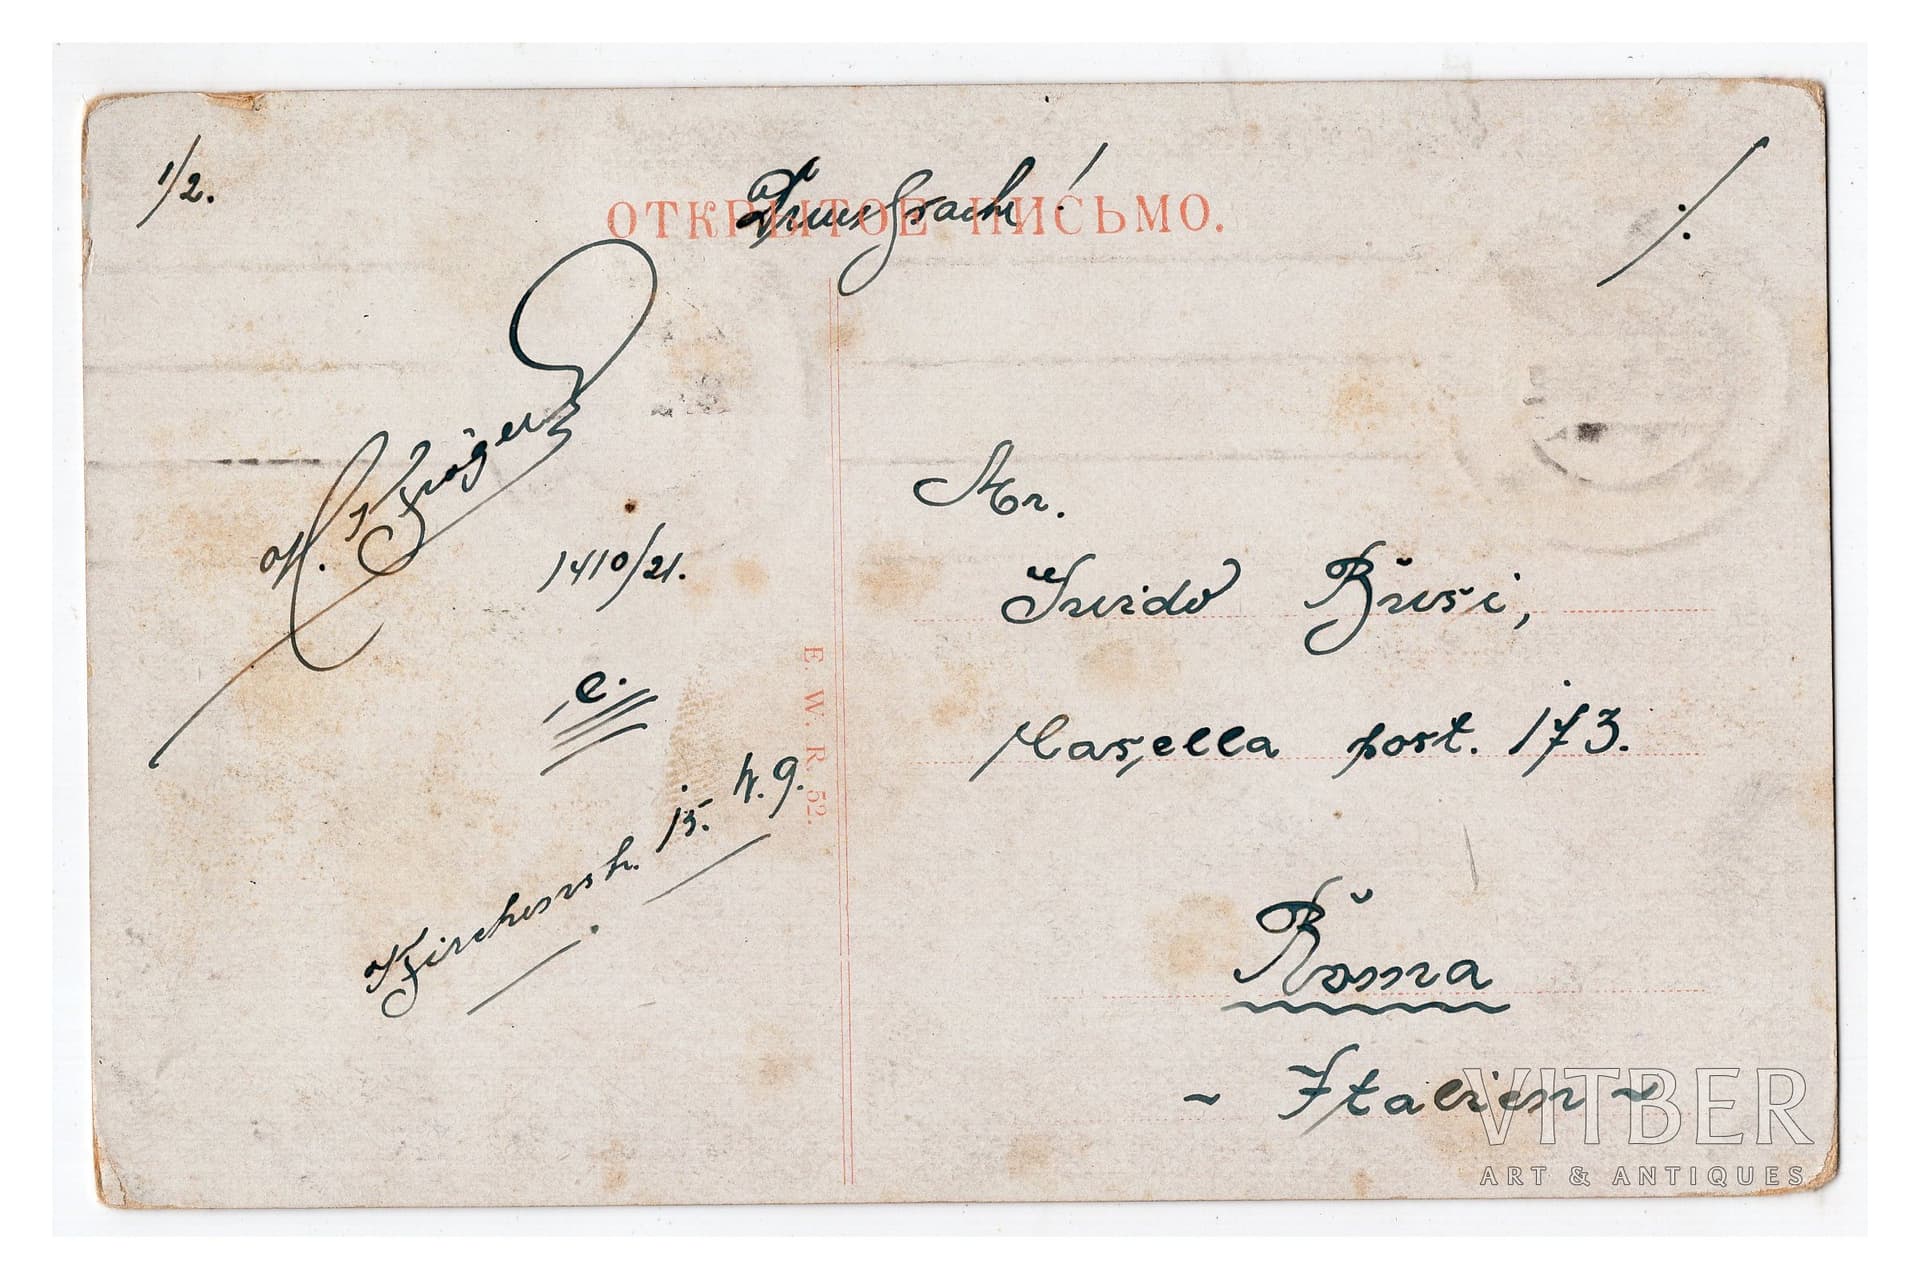 1/2.
Drucksache!
ОТКРЫТОЕ ПИСЬМО.
1410/21.
e.
15. W. 9.
E. W. R. 52.
Guido Busi,
Casella post. 173.
Roma
~ Italien ~
VITBER
ART & ANTIQUES